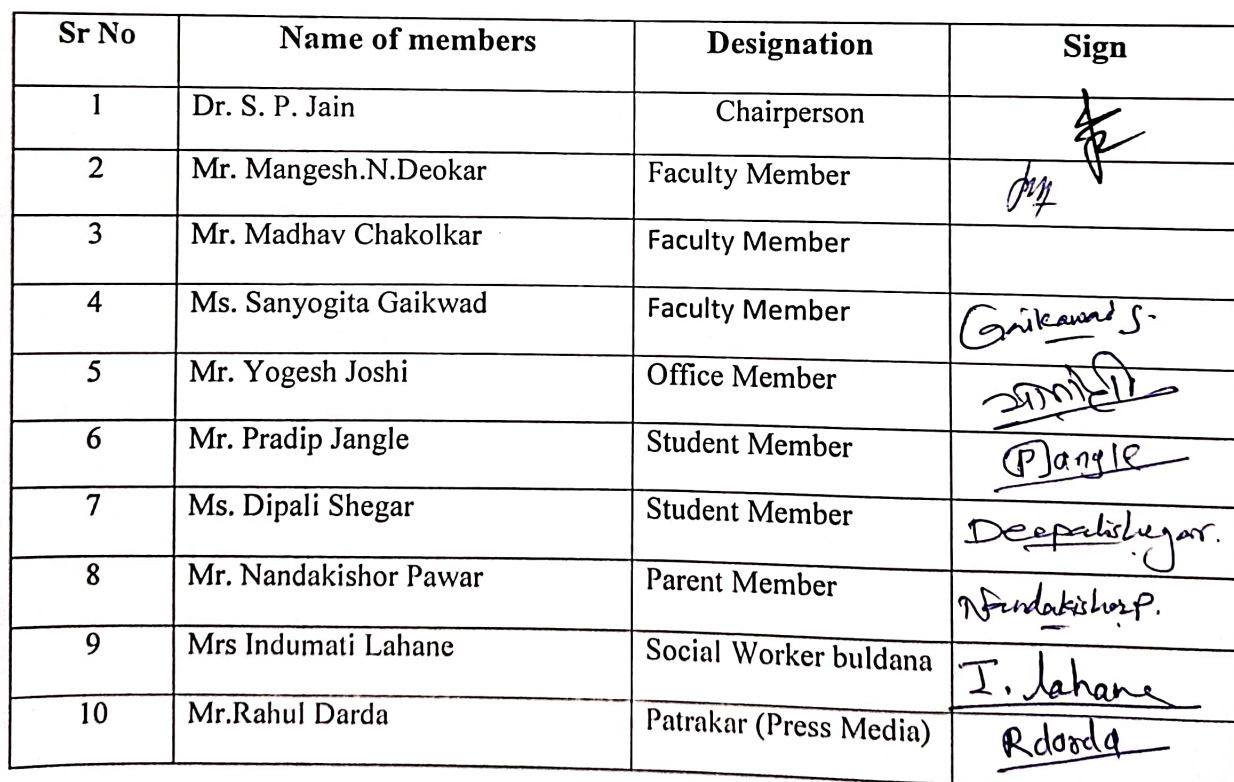 Sr No Name of members Designation Sign
1 Dr. S. P. Jain Chairperson
2 Mr. Mangesh.N.Deokar Faculty Member
3 Mr. Madhav Chakolkar Faculty Member
4 Ms. Sanyogita Gaikwad Faculty Member Gaikawad S.
5 Mr. Yogesh Joshi Office Member
6 Mr. Pradip Jangle Student Member PJangle
7 Ms. Dipali Shegar Student Member Deepalishegar.
8 Mr. Nandakishor Pawar Parent Member Nandakishor P.
9 Mrs Indumati Lahane Social Worker buldana I. lahane
10 Mr.Rahul Darda Patrakar (Press Media) Rdarda